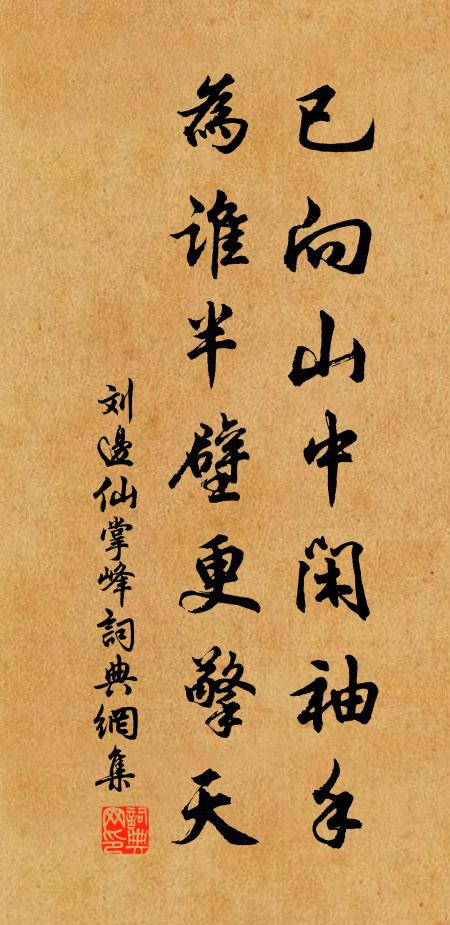 已向山中闲袖手
為谁半壁更擎天
刘邊仙掌峰詞典網集
詞典網印